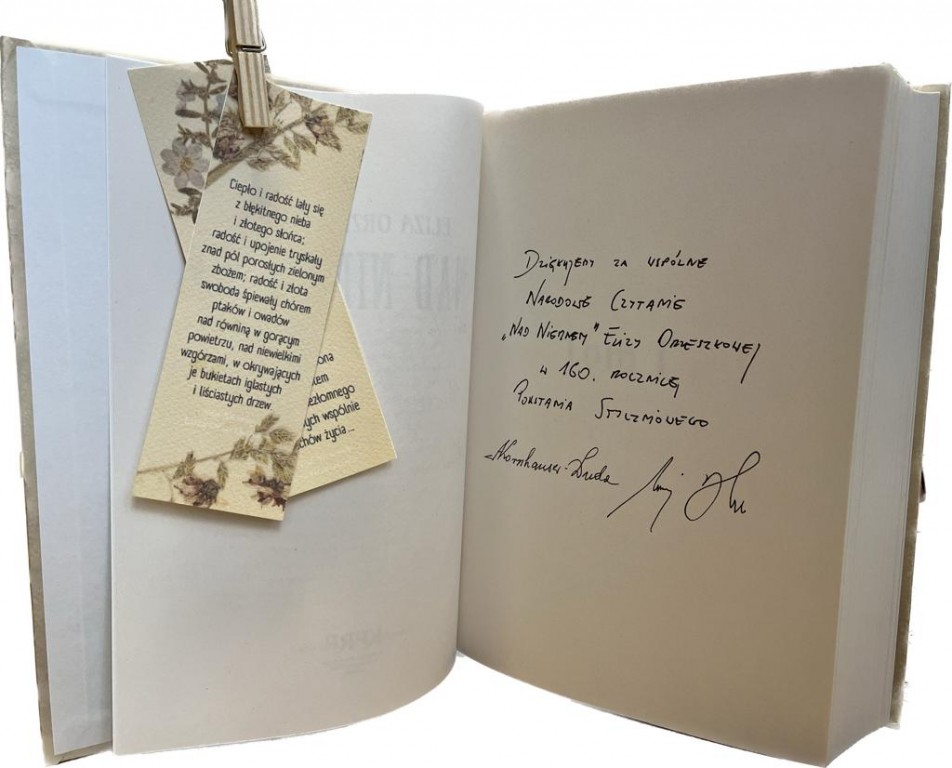 Ciepło i radość lały się
z błękitnego nieba
i złotego słońca;
radość i upojenie tryskały
znad pól porosłych zielonym
zbożem; radość i złota
swoboda śpiewały chórem
ptaków i owadów
nad równiną w gorącym
powietrzu, nad niewielkimi
wzgórzami, w okrywających
je bukietach iglastych
i liściastych drzew.
ona
tem
ezłomnego
ych wspólnie
chów życia...
ELIZA ORZ
NAD NI
KPRP
Dziękujemy za wspólne
Narodowe Czytanie
„Nad Niemnem" Elizy Orzeszkowej
w 160. rocznicę
Powstania Styczniowego
AKornhauser-Duda